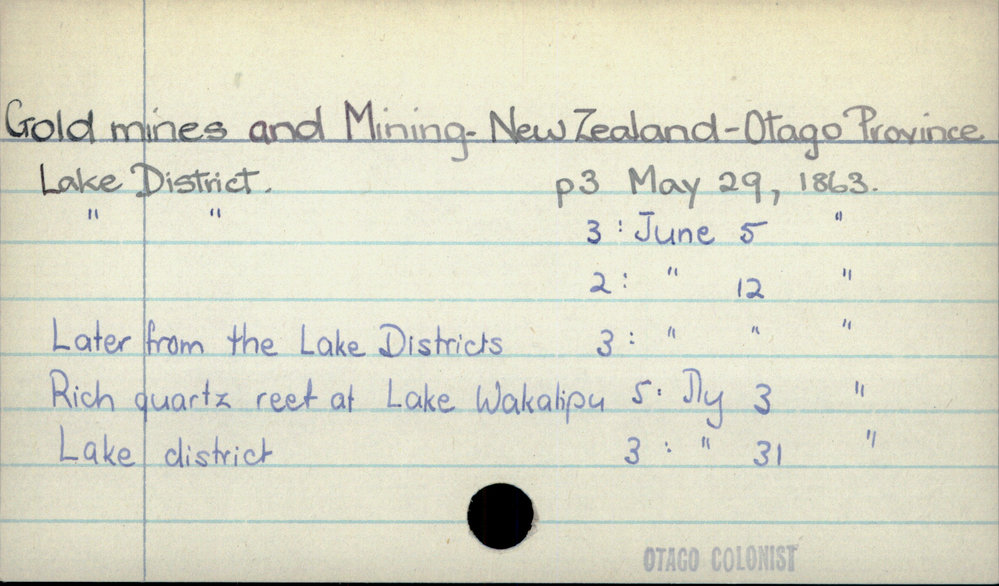 Gold mines and Mining - New Zealand - Otago Province
Lake District. p3 May 29, 1863.
" " 3 : June 5 "
2 : " 12 "
Later from the Lake Districts 3 : " " "
Rich quartz reef at Lake Wakatipu 5 : Jly 3 "
Lake district 3 : " 31 "
OTAGO COLONIST